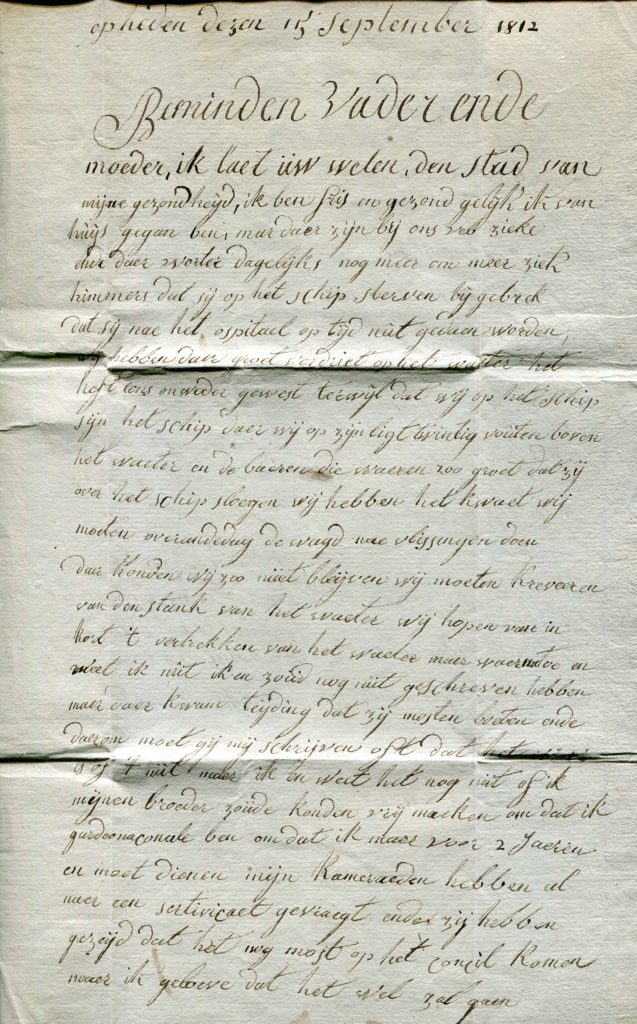 op heden dezen 15 september 1812
Beminden vader ende
moeder, ik laet uw weten, den stad van
mijne gezondheyd, ik ben fris en gezond gelijk ik van
huys gegan ben, mar daer zijn bij ons veb zieke
ende daer worter dagelijks nog meer om meer ziek
himmers dat sij op het schip sterven bij gebrek
dat sij nae het ospitael op tijd niit gedaen worden,
wij hebben daer groot verdriet op het waeter het
heft eens onweder gewest terwijl dat wij op het schip
sijn het schip daer wij op zijn ligt twintig vouten boven
het waeter en de baeren die waeren zoo groot dat zij
over het schip sloegen wij hebben het kwaet wij
moeten overandedag de wagd nae vlissingen doen
daer konden wij zoo niit bleijven wij moeten kreveeren
van den stank van het waeter wij hopen van in
kort 't vertrekken van het waeter maer waernatoe en
weet ik niit ik en zoud nog niit geschreven hebben
maer daer kwam teijding dat zij mosten loten ende
daerom moet gij mij schrijven oft dat het
is of 't niit maer ik en weet het nog niit of ik
mijnen broeder zoude konden vrij maeken om dat ik
gardeonaconale ben om dat ik maer voor 2 Jaeren
en moet dienen mijn kameraeden hebben al
naer een sertivicaet gevraegt ende zij hebben
gezeijd dat het nog most op het concil komen
maer ik geloove dat het wel zal gaen